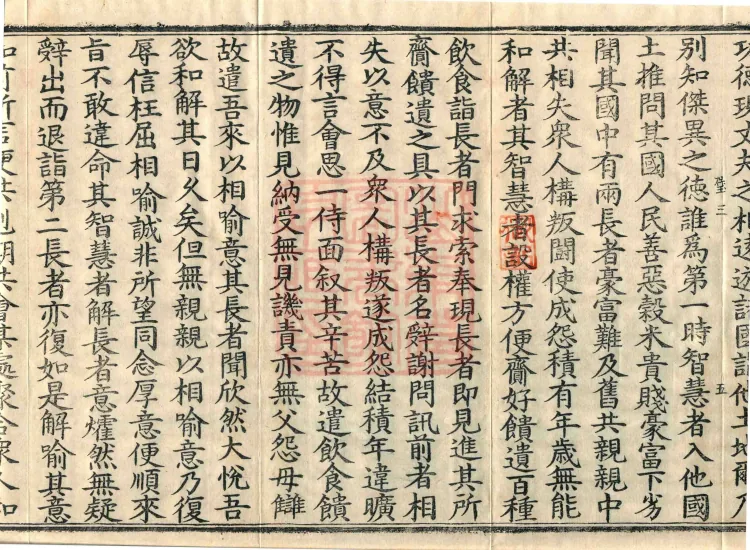 德現丈夫之相遂遊諸國詣他土地爾乃
聖三
五
別知傑異之德誰為第一時智慧者入他國
土推問其國人民善惡穀米貴賤豪富下劣
聞其國中有兩長者豪富難及舊共親親中
共相失衆人構叛鬪使成怨積有年歲無能
和解者其智慧者設權方便齎好饋遺百種
飲食詣長者門求索奉現長者即見進其所
齎饋遺之具以其長者名辭謝問訊前者相
失以意不及衆人構叛遂成怨結積年違曠
不得言會思一侍面叙其辛苦故遣飲食饋
遺之物惟見納受無見譏責亦無父怨母讎
故遣吾來以相喻意其長者聞欣然大悅吾
欲和解其日久矣但無親親以相喻意乃復
辱信枉屈相喻誠非所望同念厚意便順來
旨不敢違命其智慧者解長者意爟然無疑
辭出而退詣第二長者亦復如是解喻其意
如前所言便共剋期共會某處聚合衆人和